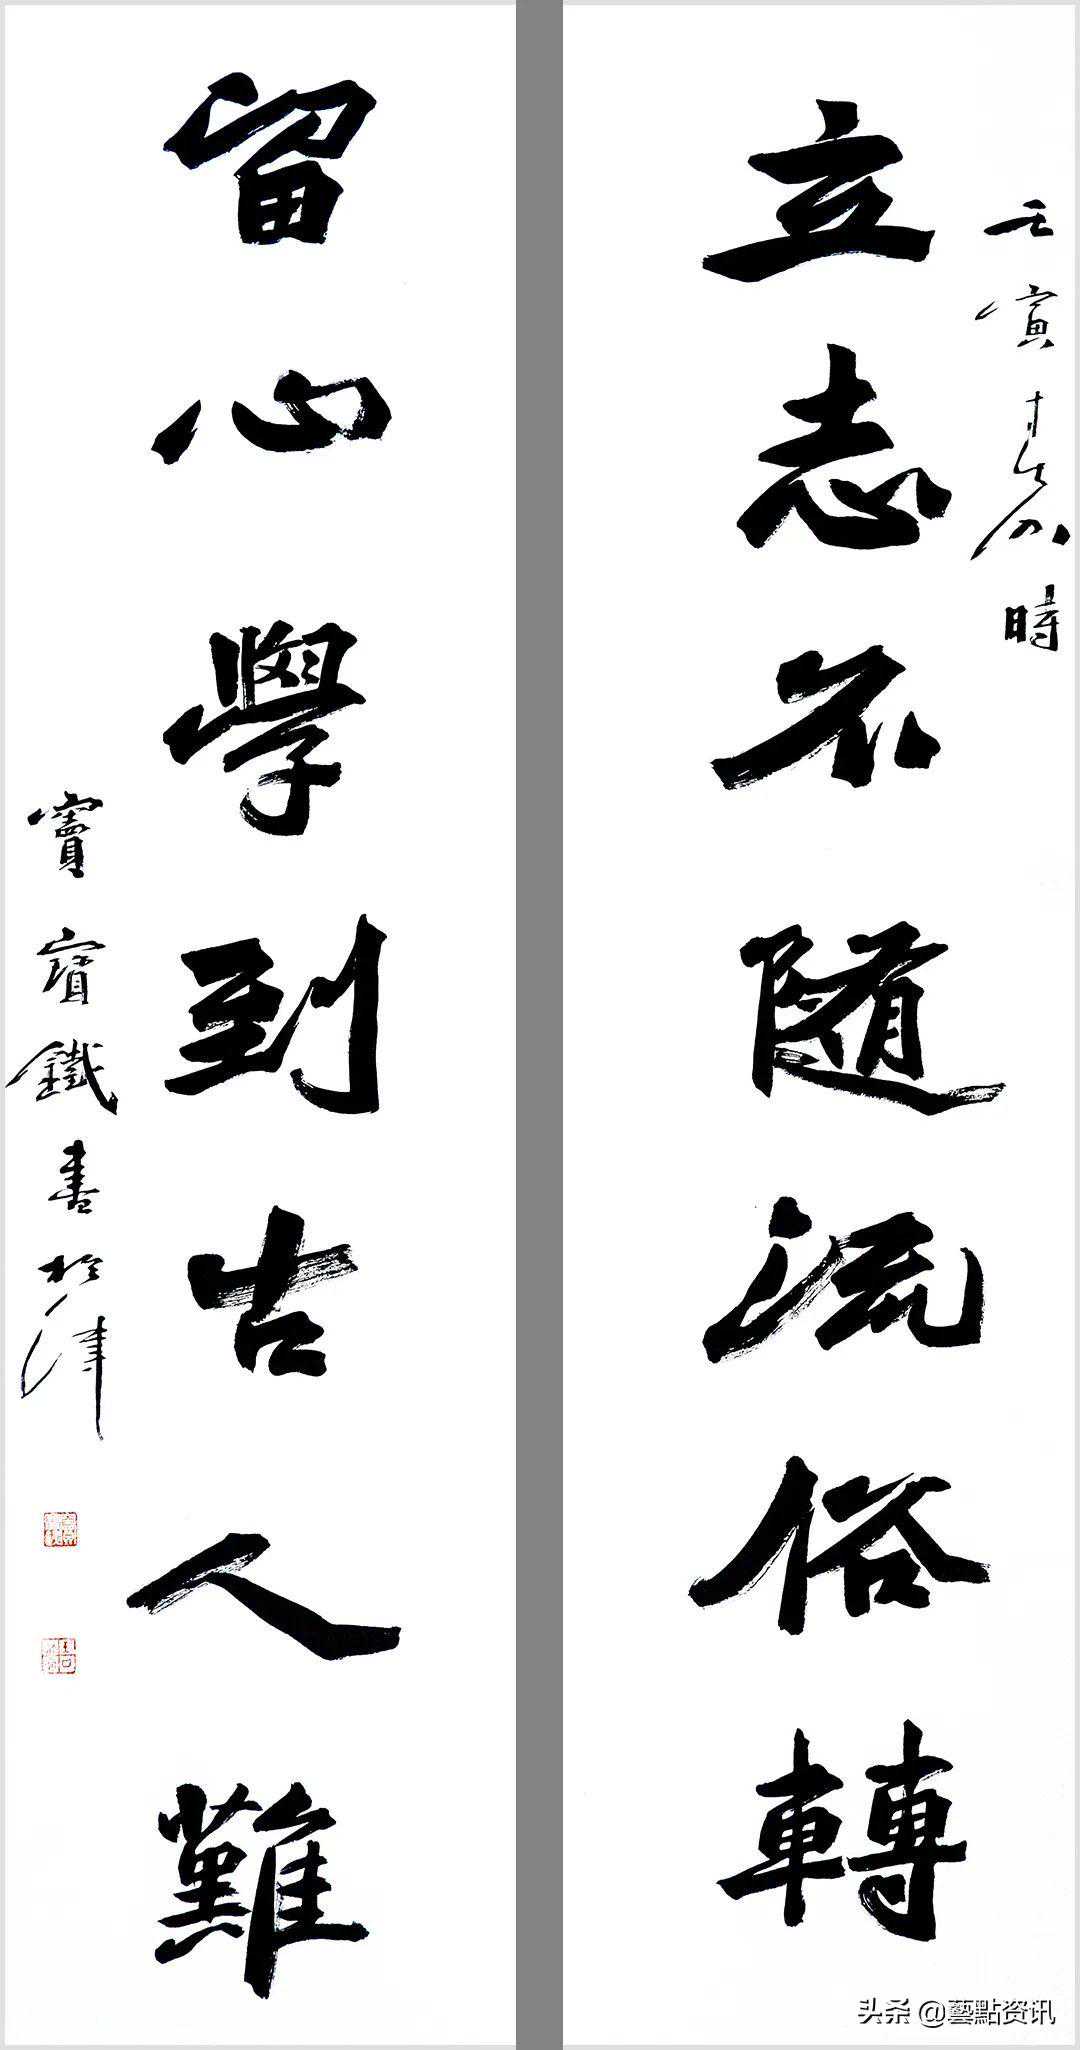 壬寅 時
立志不随流俗轉
留心學到古人難
竇寶鐵書於津
头条 @藝點资讯